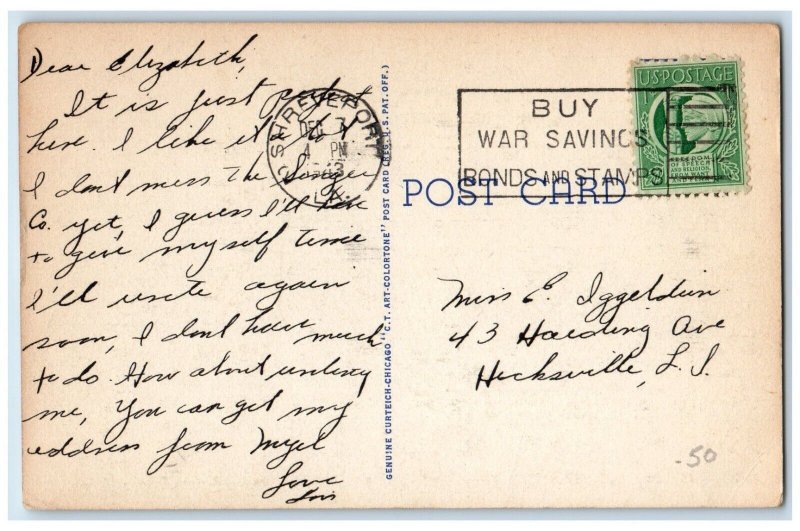 Dear Elizabeth,
It is just perfect
here. I like it
I don't miss the
Co. yet, I guess I'll have
to give myself time
I'll write again
soon, I don't have much
to do. How about writing
me, You can get my
address from
Love
Lois
SHREVEPORT
DEC 7
4 PM
1943
LA.
BUY
WAR SAVINGS
BONDS AND STAMPS
U.S. POSTAGE
FREEDOM
OF SPEECH
AND RELIGION,
FROM WANT
AND FEAR
POST CARD
GENUINE CURTEICH-CHICAGO "C.T. ART-COLORTONE" POST CARD (REG. U.S. PAT. OFF.)
Miss E.
43 Harding Ave
Hicksville, L. I.
.50